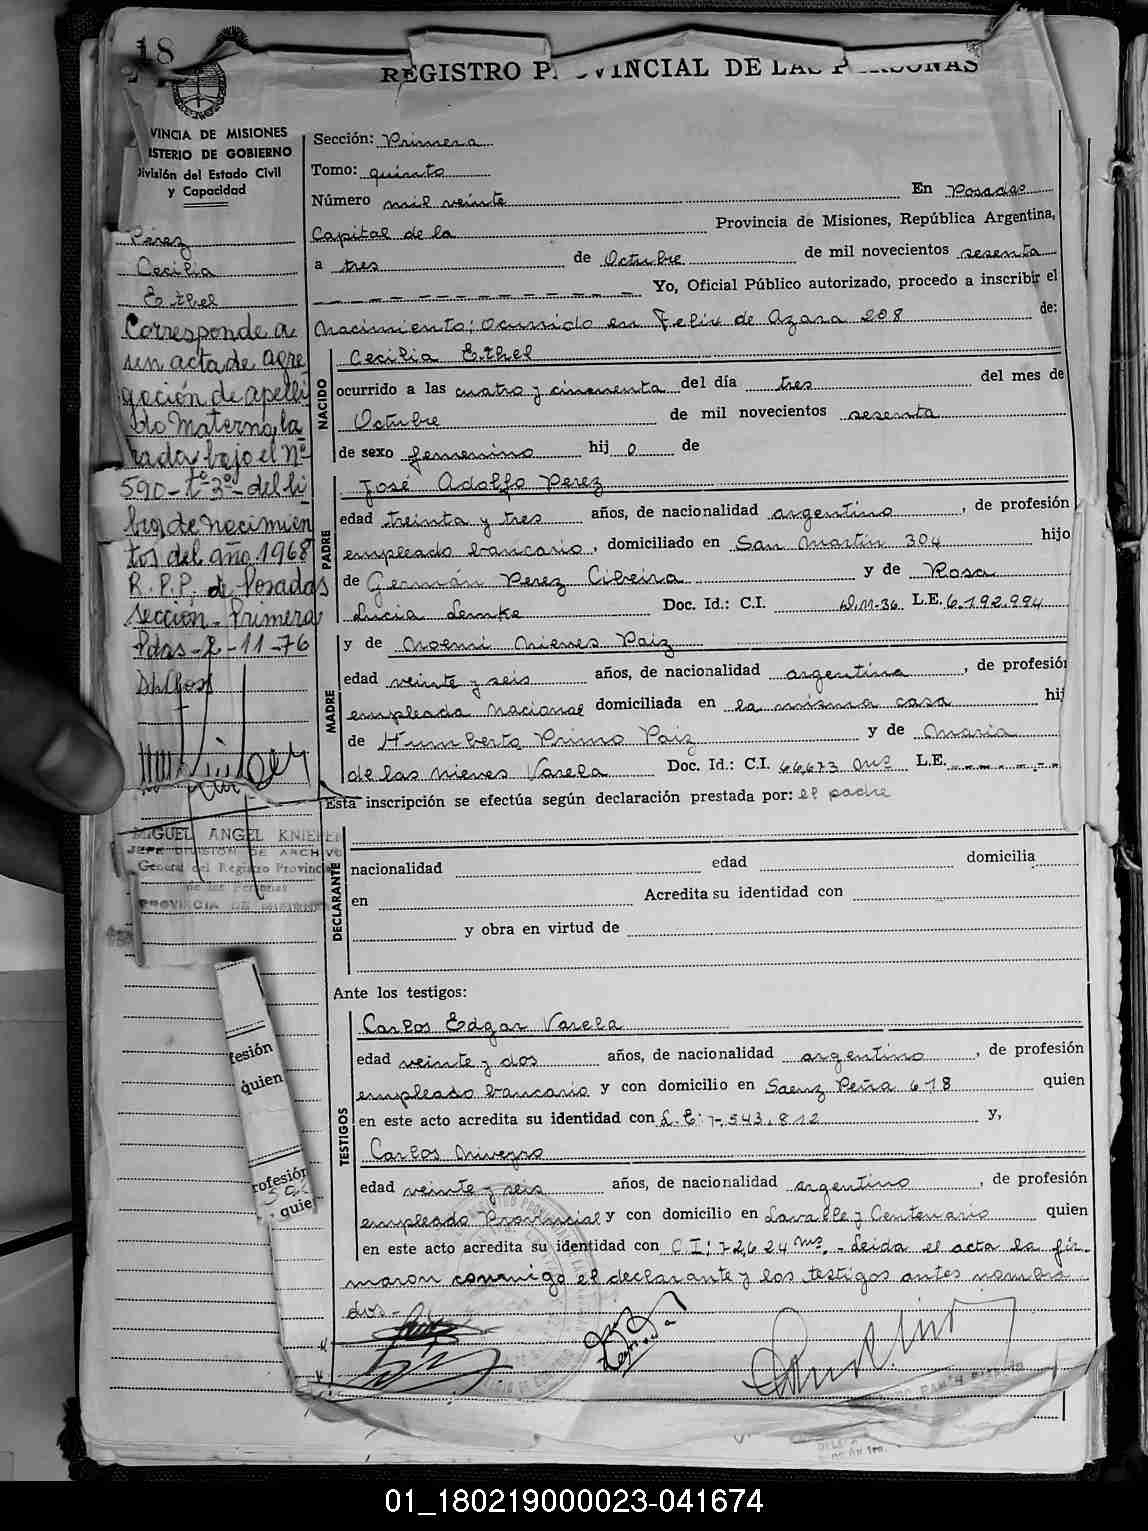 18
REGISTRO PROVINCIAL DE LAS PERSONAS
VINCIA DE MISIONES
ISTERIO DE GOBIERNO
División del Estado Civil
y Capacidad
Perez
Cecilia
Ethel
Corresponde a
un acta de agre-
gación de apelli
do Materno, la
rada bajo el Nº
590-tº3º-del li
bro de nacimien
tos del año 1968
R.P.P. de Posadas
sección-Primera
Pdas-2-11-76
MIGUEL ANGEL
JEFE DIVISION DE ARCHIVO
General del Registro Provincial
de las Personas
PROVINCIA DE MISIONES
Sección: Primera
Tomo: quinto
Número mil veinte En Posadas
Capital de la Provincia de Misiones, República Argentina,
a tres de Octubre de mil novecientos sesenta
Yo, Oficial Público autorizado, procedo a inscribir el
Nacimiento; Ocurrido en Felix de Azara 298 de:
NACIDO
Cecilia Ethel
ocurrido a las cuatro y cincuenta del día tres del mes de
Octubre de mil novecientos sesenta
de sexo femenino hij o de
PADRE
José Adolfo Perez
edad treinta y tres años, de nacionalidad argentino, de profesión
empleado bancario, domiciliado en San Martin 304 hijo
de Germán Perez Cibeira y de Rosa
Lucia Lemke Doc. Id.: C.I. L.E. 6.192.994
MADRE
y de Noemi Nieves Paiz
edad veinte y seis años, de nacionalidad argentina, de profesió
empleada nacional domiciliada en la misma casa hij
de Humberto Primo Paiz y de Maria
de las Nieves Varela Doc. Id.: C.I. 66,673 Mºˢ L.E.
Esta inscripción se efectúa según declaración prestada por: el padre
DECLARANTE
nacionalidad edad domicilia
en Acredita su identidad con
y obra en virtud de
Ante los testigos:
TESTIGOS
Carlos Edgar Varela
edad veinte y dos años, de nacionalidad argentino, de profesión
empleado bancario y con domicilio en Saenz Peña 618 quien
en este acto acredita su identidad con L.E: 7,543,812 y,
Carlos
edad veinte y seis años, de nacionalidad argentino, de profesión
empleado Provincial y con domicilio en Lavalle y Centenario quien
en este acto acredita su identidad con C I: 72,624 Mºˢ.- Leida el acta la fir-
maron conmigo el declarante y los testigos antes nombra
dos-
fesión
quien
rofesión
quie
01_180219000023-041674